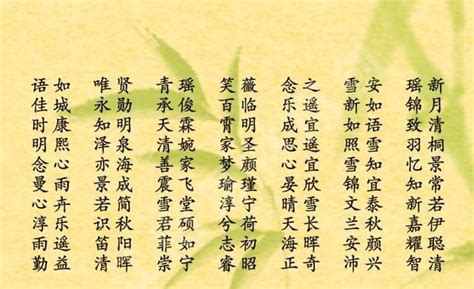 新月清桐景常若伊聪清
瑶锦致羽忆知新嘉耀智
安如语雪知宜泰秋颜兴
雪新如照雪锦文兰安沛
之遥宜遥宜欣雪长晖奇
念乐成思心晏晴天海正
薇临明圣颜瑾宁荷初昭
笑百霄家梦瑜淳兮志睿
瑶俊霖婉家飞堂硕如宁
青承天清善震雪君菲崇
贤勋明泉海成简秋阳晖
唯永知泽亦景若识笛清
如城康熙心雨卉乐遥益
语佳时明念曼心淳雨勤